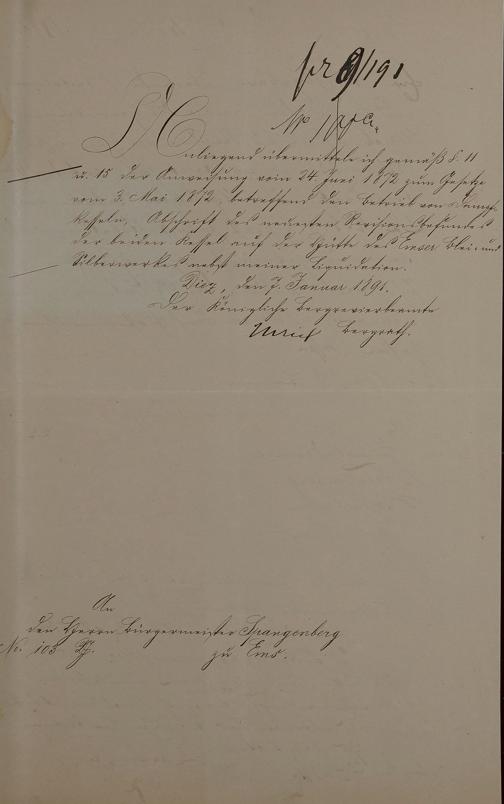 pr 8/1 91
Anliegend übermittele ich gemäß §. 11
u. 15 der Anweisung vom 24 Juni 1872 zum Gesetze
vom 3. Mai 1872, betreffend den Betrieb von Dampf-
kesseln, Abschrift des neuesten Revisionsbefundes
der beiden Kessel auf der Hütte des Emser Blei- und
Silberwerkes nebst meiner Liquidation.
Diez, den 7. Januar 1891.
Der Königliche Bergrevierbeamte
Ulrich Bergrath.
An
den Herrn Bürgermeister Spangenberg
No. 105 zu Ems.